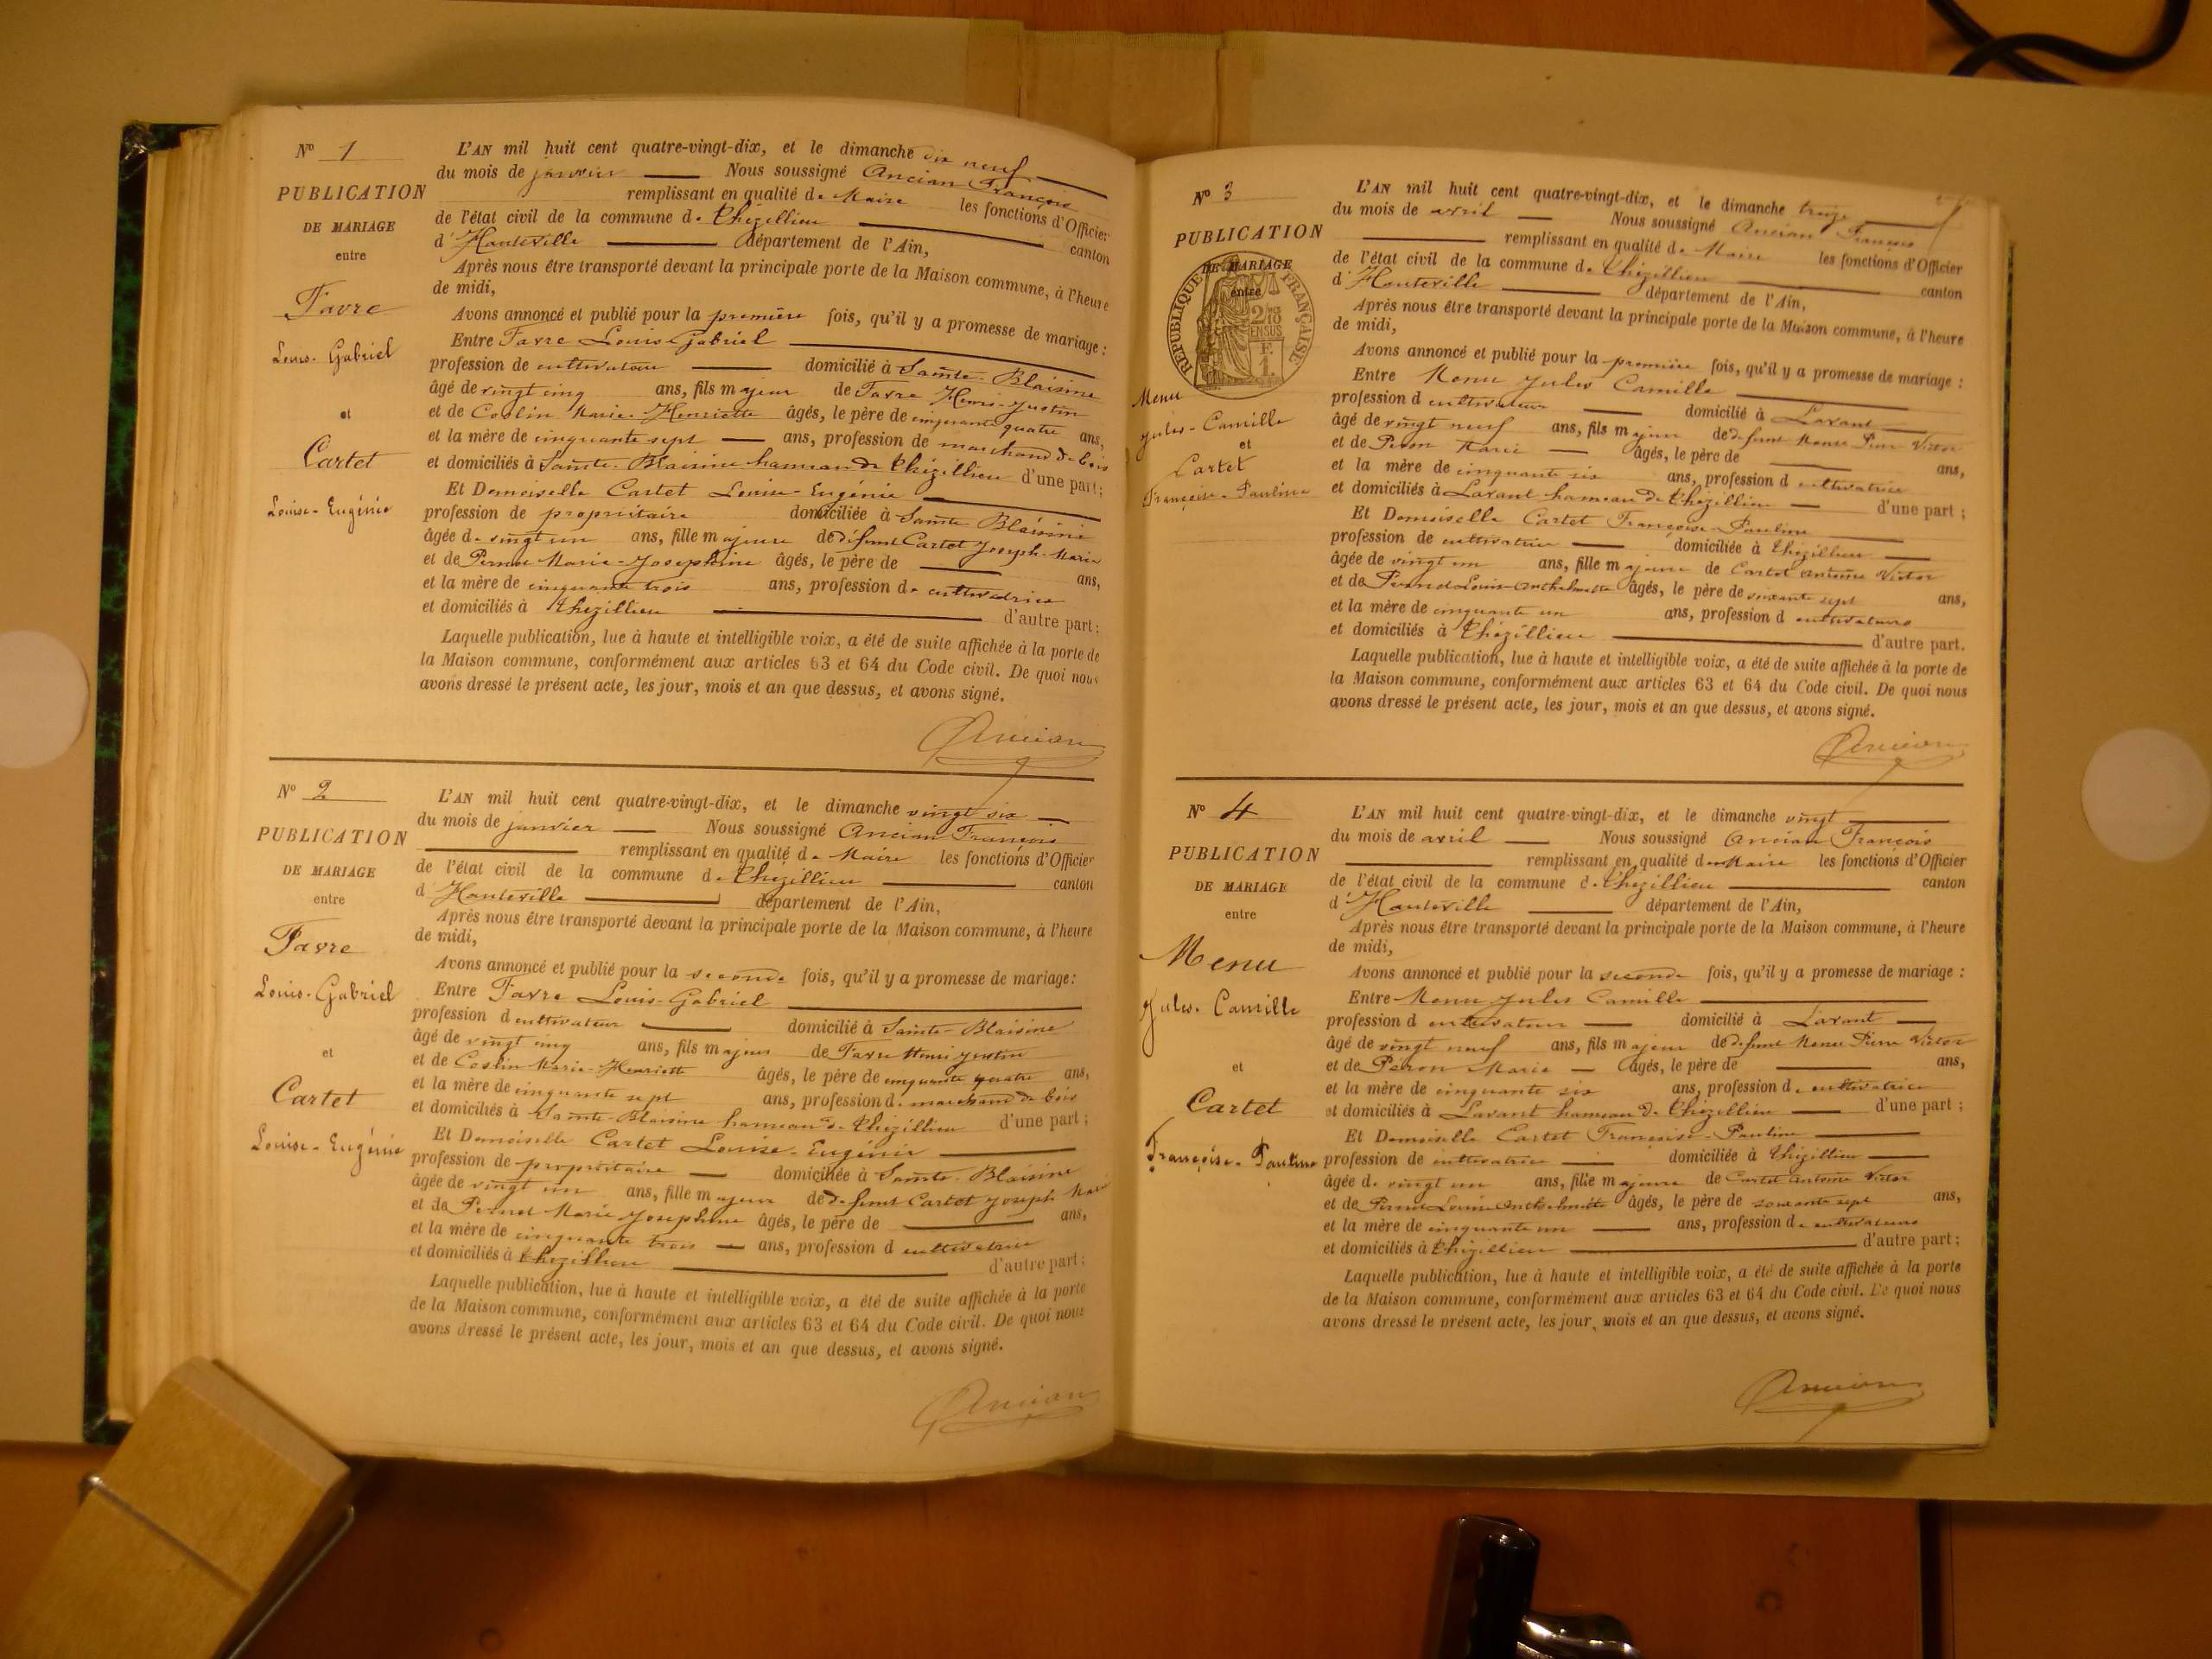 Nº 1
PUBLICATION
DE MARIAGE
entre
Favre
Louis-Gabriel
et
Cartet
Louise-Eugénie
L'AN mil huit cent quatre-vingt-dix, et le dimanche dix neuf
du mois de janvier Nous soussigné Ancian François
remplissant en qualité de Maire les fonctions d'Officier
de l'état civil de la commune de Thézillieu canton
d'Hauteville département de l'Ain,
Après nous être transporté devant la principale porte de la Maison commune, à l'heure
de midi,
Avons annoncé et publié pour la première fois, qu'il y a promesse de mariage :
Entre Favre Louis-Gabriel
profession de cultivateur domicilié à Sainte-Blaisine
âgé de vingt cinq ans, fils majeur de Favre Henri-Justin
et de Coslin Marie-Henriette âgés, le père de cinquante quatre ans,
et la mère de cinquante sept ans, profession de marchand de bois
et domiciliés à Sainte-Blaisine hameau de Thézillieu d'une part ;
Et Demoiselle Cartet Louise-Eugénie
profession de propriétaire domiciliée à Sainte Blaisine
âgée de vingt un ans, fille majeure de défunt Cartet Joseph-Marie
et de Pernet Marie-Josephine âgés, le père de ans,
et la mère de cinquante trois ans, profession de cultivatrice
et domiciliés à Thézillieu d'autre part ;
Laquelle publication, lue à haute et intelligible voix, a été de suite affichée à la porte de
la Maison commune, conformément aux articles 63 et 64 du Code civil. De quoi nous
avons dressé le présent acte, les jour, mois et an que dessus, et avons signé.
Ancian
Nº 2
PUBLICATION
DE MARIAGE
entre
Favre
Louis-Gabriel
et
Cartet
Louise-Eugénie
L'AN mil huit cent quatre-vingt-dix, et le dimanche vingt six
du mois de janvier Nous soussigné Ancian François
remplissant en qualité de Maire les fonctions d'Officier
de l'état civil de la commune de Thézillieu canton
d'Hauteville département de l'Ain,
Après nous être transporté devant la principale porte de la Maison commune, à l'heure
de midi,
Avons annoncé et publié pour la seconde fois, qu'il y a promesse de mariage :
Entre Favre Louis-Gabriel
profession d cultivateur domicilié à Sainte-Blaisine
âgé de vingt cinq ans, fils majeur de Favre Henri Justin
et de Coslin Marie-Henriette âgés, le père de cinquante quatre ans,
et la mère de cinquante sept ans, profession de marchand de bois
et domiciliés à Sainte-Blaisine hameau de Thézillieu d'une part ;
Et Demoiselle Cartet Louise-Eugénie
profession de propriétaire domiciliée à Sainte-Blaisine
âgée de vingt un ans, fille majeure de défunt Cartet Joseph Marie
et de Pernet Marie Josephine âgés, le père de ans,
et la mère de cinquante trois ans, profession d cultivatrice
et domiciliés à Thézillieu d'autre part ;
Laquelle publication, lue à haute et intelligible voix, a été de suite affichée à la porte
de la Maison commune, conformément aux articles 63 et 64 du Code civil. De quoi nous
avons dressé le présent acte, les jour, mois et an que dessus, et avons signé.
Ancian
Nº 3
PUBLICATION
DE MARIAGE
entre
RÉPUBLIQUE FRANÇAISE
2/10
EN SUS
F.
1.
Menu
Jules-Camille
et
Cartet
Françoise-Pauline
L'AN mil huit cent quatre-vingt-dix, et le dimanche treize
du mois de avril Nous soussigné Ancian François
remplissant en qualité de Maire les fonctions d'Officier
de l'état civil de la commune de Thézillieu canton
d'Hauteville département de l'Ain,
Après nous être transporté devant la principale porte de la Maison commune, à l'heure
de midi,
Avons annoncé et publié pour la première fois, qu'il y a promesse de mariage :
Entre Menu Jules Camille
profession d cultivateur domicilié à Lavant
âgé de vingt neuf ans, fils majeur de défunt Menu Pierre Victor
et de Peron Marie âgés, le père de ans,
et la mère de cinquante six ans, profession d cultivatrice
et domiciliés à Lavant hameau de Thézillieu d'une part ;
Et Demoiselle Cartet Françoise-Pauline
profession de cultivatrice domiciliée à Thézillieu
âgée de vingt un ans, fille majeure de Cartet Antoine Victor
et de Pernet Louise-Anthelmette âgés, le père de soixante sept ans,
et la mère de cinquante un ans, profession d cultivateurs
et domiciliés à Thézillieu d'autre part.
Laquelle publication, lue à haute et intelligible voix, a été de suite affichée à la porte de
la Maison commune, conformément aux articles 63 et 64 du Code civil. De quoi nous
avons dressé le présent acte, les jour, mois et an que dessus, et avons signé.
Ancian
Nº 4
PUBLICATION
DE MARIAGE
entre
Menu
Jules-Camille
et
Cartet
Françoise-Pauline
L'AN mil huit cent quatre-vingt-dix, et le dimanche vingt
du mois de avril Nous soussigné Ancian François
remplissant en qualité de Maire les fonctions d'Officier
de l'état civil de la commune de Thézillieu canton
d'Hauteville département de l'Ain,
Après nous être transporté devant la principale porte de la Maison commune, à l'heure
de midi,
Avons annoncé et publié pour la seconde fois, qu'il y a promesse de mariage :
Entre Menu Jules Camille
profession d cultivateur domicilié à Lavant
âgé de vingt neuf ans, fils majeur de défunt Menu Pierre Victor
et de Peron Marie âgés, le père de ans,
et la mère de cinquante six ans, profession de cultivatrice
et domiciliés à Lavant hameau de Thézillieu d'une part ;
Et Demoiselle Cartet Françoise-Pauline
profession de cultivatrice domiciliée à Thézillieu
âgée de vingt un ans, fille majeure de Cartet Antoine Victor
et de Pernet Louise Anthelmette âgés, le père de soixante sept ans,
et la mère de cinquante un ans, profession de cultivateurs
et domiciliés à Thézillieu d'autre part ;
Laquelle publication, lue à haute et intelligible voix, a été de suite affichée à la porte
de la Maison commune, conformément aux articles 63 et 64 du Code civil. De quoi nous
avons dressé le présent acte, les jour, mois et an que dessus, et avons signé.
Ancian